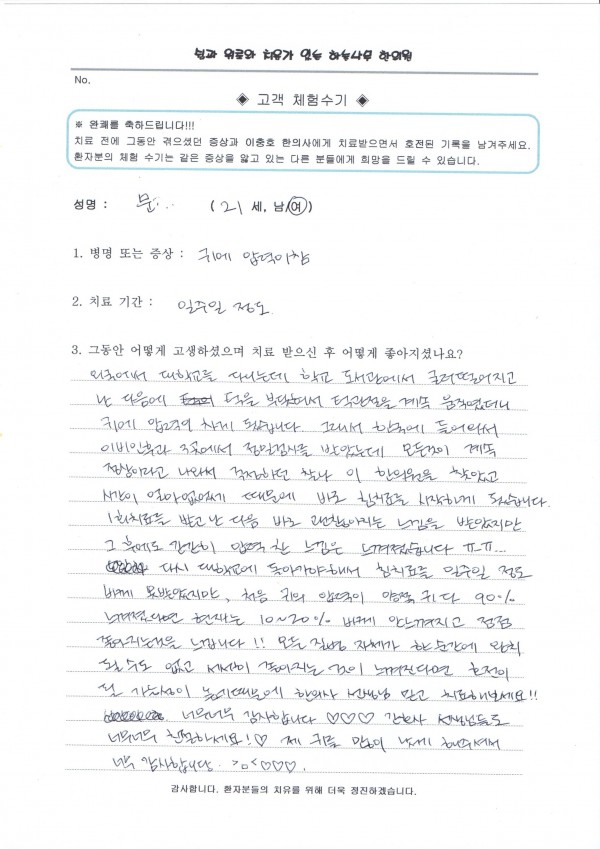 쉼과 위로와 치유가 있는 하늘나무 한의원
No.
◈ 고객 체험수기 ◈
※ 완쾌를 축하드립니다!!!
치료 전에 그동안 겪으셨던 증상과 이충호 한의사에게 치료받으면서 호전된 기록을 남겨주세요.
환자분의 체험 수기는 같은 증상을 앓고 있는 다른 분들에게 희망을 드릴 수 있습니다.
성명 : 문... ( 21 세, 남/여)
1. 병명 또는 증상 : 귀에 압력이참
2. 치료 기간 : 일주일 정도
3. 그동안 어떻게 고생하셨으며 치료 받으신 후 어떻게 좋아지셨나요?
외국에서 대학교를 다니는데 학교 도서관에서 굴러떨어지고
난 다음에 턱을 부딪혀서 턱관절을 계속 움직였더니
귀에 압력이 차게 됬습니다. 그래서 한국에 들어와서
이비인후과 3곳에서 정밀검사를 받았는데 모든것이 계속
정상이라고 나와서 걱정하던 찰나 이 한의원을 찾았고
시간이 얼마없었기 때문에 바로 침치료를 시작하게 됬습니다.
1회치료를 받고 난 다음 바로 괜찮아지는 느낌을 받았지만
그 후에도 간간히 압력 찬 느낌은 느껴졌습니다 ㅠㅠ...
다시 대학교에 돌아가야해서 침치료를 일주일 정도
밖에 못받았지만, 처음 귀의 압력이 양쪽 귀 다 90%
느껴졌다면 현재는 10~20% 밖에 안느껴지고 점점
좋아지는것을 느낍니다!! 모든 질병 자체가 한순간에 완치
될 수도 없고 서서히 좋아지는 것이 느껴진다면 호전이
될 가능성이 높기때문에 한의사 선생님 믿고 치료해보세요!!
너무너무 감사합니다 ♡♡♡ 간호사 선생님들도
너무너무 친절하세요!♡ 제 귀를 많이 낫게 해주셔서
너무 감사합니다. >_<♡♡♡.
감사합니다. 환자분들의 치유를 위해 더욱 정진하겠습니다.